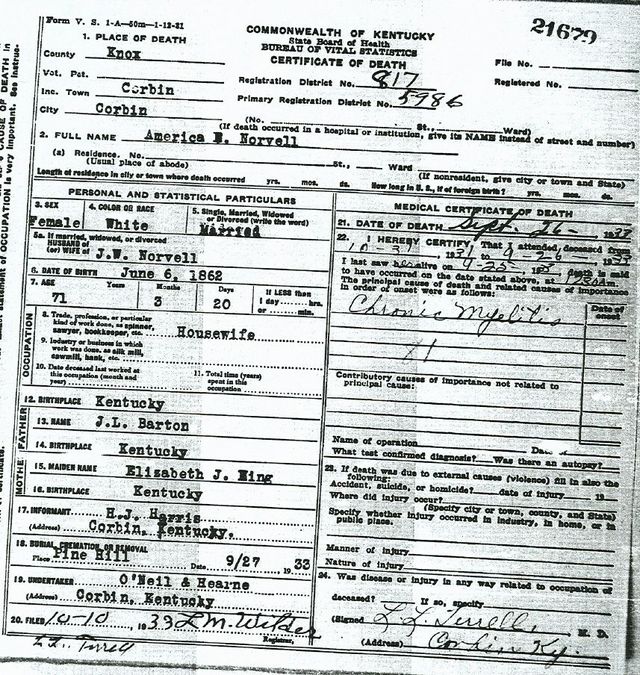 Form V. S. 1-A—50m—1-12-31
21679
COMMONWEALTH OF KENTUCKY
State Board of Health
BUREAU OF VITAL STATISTICS
CERTIFICATE OF DEATH
1. PLACE OF DEATH
County Knox
Vot. Pct.
Inc. Town Corbin
City Corbin
File No.
Registered No.
Registration District No. 817
Primary Registration District No. 5986
(No. St., Ward)
(If death occurred in a hospital or institution, give its NAME instead of street and number)
2. FULL NAME America Norvell
(a) Residence. No. St., Ward
(Usual place of abode)
(If nonresident, give city or town and State)
Length of residence in city or town where death occurred yrs. mos. ds. How long in U. S., if of foreign birth? yrs. mos. ds.
PERSONAL AND STATISTICAL PARTICULARS
3. SEX Female
4. COLOR OR RACE White
5. Single, Married, Widowed or Divorced (write the word) Married
5a. If married, widowed, or divorced
HUSBAND of
(or) WIFE of J.W. Norvell
6. DATE OF BIRTH June 6, 1862
7. AGE Years Months Days If LESS than
71 3 20 1 day hrs. or min.
OCCUPATION
8. Trade, profession, or particular kind of work done, as spinner, sawyer, bookkeeper, etc. Housewife
9. Industry or business in which work was done, as silk mill, sawmill, bank, etc.
10. Date deceased last worked at this occupation (month and year)
11. Total time (years) spent in this occupation
12. BIRTHPLACE Kentucky
FATHER
13. NAME J.L. Barton
14. BIRTHPLACE Kentucky
MOTHE
15. MAIDEN NAME Elisabeth J.
16. BIRTHPLACE Kentucky
17. INFORMANT H.J. Harris
(Address) Corbin, Kentucky.
18. BURIAL, CREMATION OR REMOVAL
Place Pine Hill Date 9/27 1933
19. UNDERTAKER O'Neil & Hearne
(Address) Corbin, Kentucky
20. FILED 10-10, 1933 L M. Wilder
Registrar.
L L. Terrell
MEDICAL CERTIFICATE OF DEATH
21. DATE OF DEATH Sept. 26- 1933
22. I HEREBY CERTIFY, That I attended deceased from
to 9-26-
I last saw alive on death is said
to have occurred on the date stated above, at
The principal cause of death and related causes of importance
in order of onset were as follows:
Date of onset
Chronic Myelitis
Contributory causes of importance not related to
principal cause:
Name of operation Date of
What test confirmed diagnosis? Was there an autopsy?
23. If death was due to external causes (violence) fill in also the
following:
Accident, suicide, or homicide? date of injury 19
Where did injury occur?
(Specify city or town, county, and State)
Specify whether injury occurred in industry, in home, or in
public place.
Manner of injury
Nature of injury
24. Was disease or injury in any way related to occupation of
deceased? If so, specify
(Signed L. L. Terrell, M. D.
(Address) Corbin Ky.